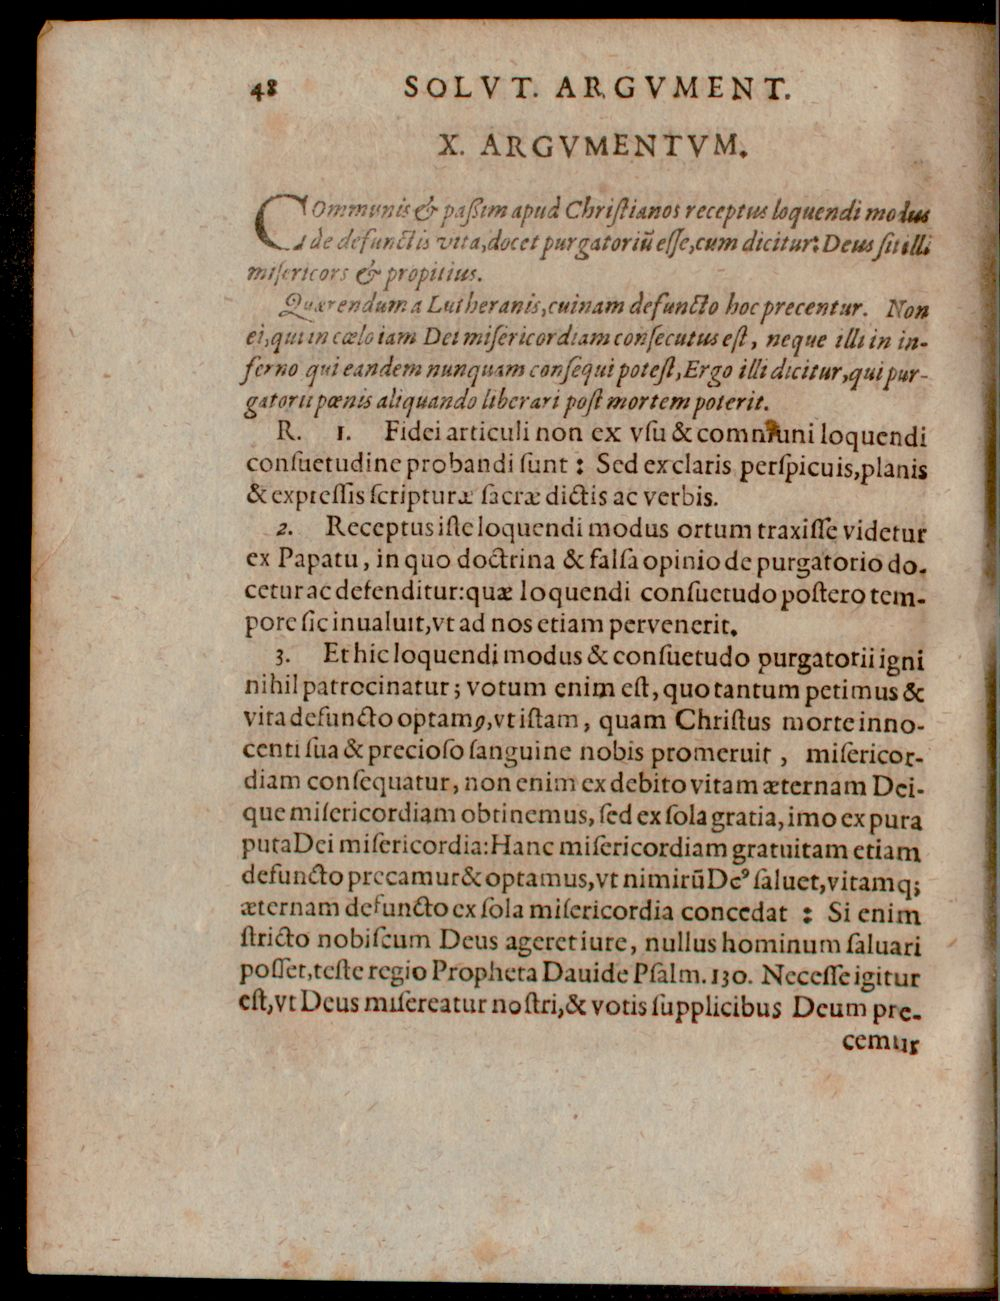 48 SOLVT. ARGVMENT.
X. ARGVMENTVM.
COmmunis & paßim apud Chriſtianos receptus loquendi modus
de defunctis vita, docet purgatoriũ eſſe, cum dicitur: Deus ſit illi
miſericors & propitius.
Quærendum a Lutheranis, cuinam defuncto hoc precentur. Non
ei, qui in cœlo iam Dei miſericordiam conſecutus eſt, neque illi in in-
ferno qui eandem nunquam conſequi poteſt, Ergo illi dicitur, qui pur-
gatorii pœnis aliquando liberari poſt mortem poterit.
R. 1. Fidei articuli non ex vſu & communi loquendi
conſuetudine probandi ſunt: Sed ex claris perſpicuis, planis
& expreſſis ſcripturæ ſacræ dictis ac verbis.
2. Receptus iſte loquendi modus ortum traxiſſe videtur
ex Papatu, in quo doctrina & falſa opinio de purgatorio do-
cetur ac defenditur: quæ loquendi conſuetudo poſtero tem-
pore ſic inualuit, vt ad nos etiam pervenerit.
3. Et hic loquendi modus & conſuetudo purgatorii igni
nihil patrocinatur; votum enim eſt, quo tantum petimus &
vita defuncto optamꝰ, vt iſtam, quam Chriſtus morte inno-
centi ſua & precioſo ſanguine nobis promeruit, miſericor-
diam conſequatur, non enim ex debito vitam æternam Dei-
que miſericordiam obtinemus, ſed ex ſola gratia, imo ex pura
puta Dei miſericordia: Hanc miſericordiam gratuitam etiam
defuncto precamur & optamus, vt nimirũ Deꝰ ſaluet, vitamq;
æternam defuncto ex ſola miſericordia concedat: Si enim
ſtricto nobiſcum Deus ageret iure, nullus hominum ſaluari
poſſet, teſte regio Propheta Dauide Pſalm. 130. Neceſſe igitur
eſt, vt Deus miſereatur noſtri, & votis ſupplicibus Deum pre-
cemur